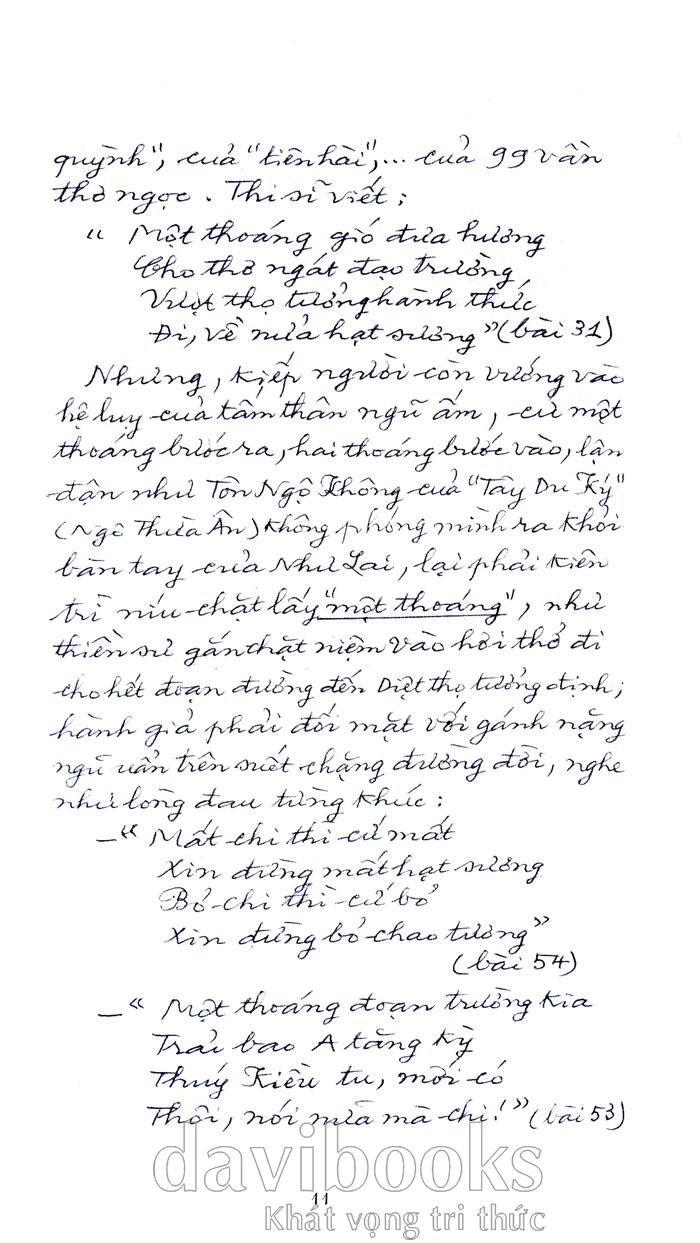 quỳnh", của "tiên hài",... của 99 vần
thơ ngọc. Thi sĩ viết:
" Một thoáng gió đưa hương
Cho thơ ngát đạo trường
Vượt thọ tưởng hành thức
Đi, về nửa hạt sương" (bài 31)
Nhưng, kiếp người còn vướng vào
hệ lụy của tấm thân ngũ ấm, cứ một
thoáng bước ra, hai thoáng bước vào, lận
đận như Tôn Ngộ Không của "Tây Du Ký"
(Ngô Thừa Ân) không phóng mình ra khỏi
bàn tay của Như Lai, lại phải kiên
trì níu chặt lấy "một thoáng", như
thiền sư gắn chặt niệm vào hơi thở đi
cho hết đoạn đường đến Diệt thọ tưởng định;
hành giả phải đối mặt với gánh nặng
ngũ uẩn trên suốt chặng đường đời, nghe
như lòng đau từng khúc:
–" Mất chi thì cứ mất
Xin đừng mất hạt sương
Bỏ chi thì cứ bỏ
Xin đừng bỏ chao tương"
(bài 54)
–" Một thoáng đoạn trường kia
Trải bao A tăng kỳ
Thúy Kiều tu, mới có
Thôi, nói nữa mà chi!" (bài 53)
davibooks
11
Khát vọng tri thức